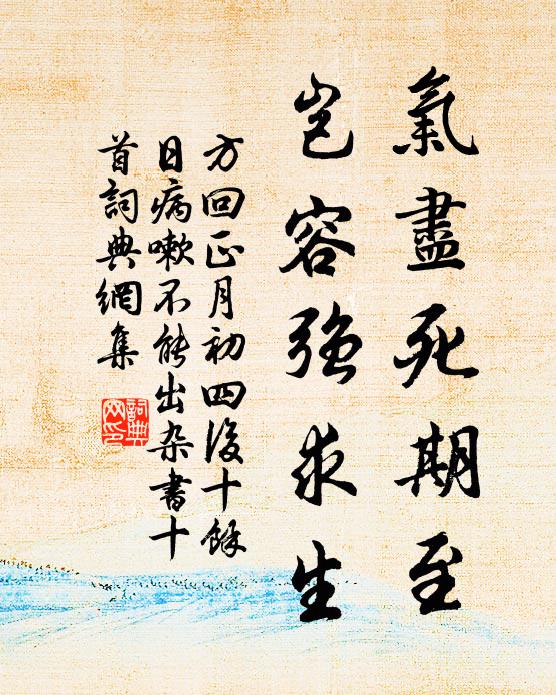 氣盡死期至
豈容強求生
方回正月初四後十餘
日病嗽不能出杂書十
首詞典網集
詞典
网印